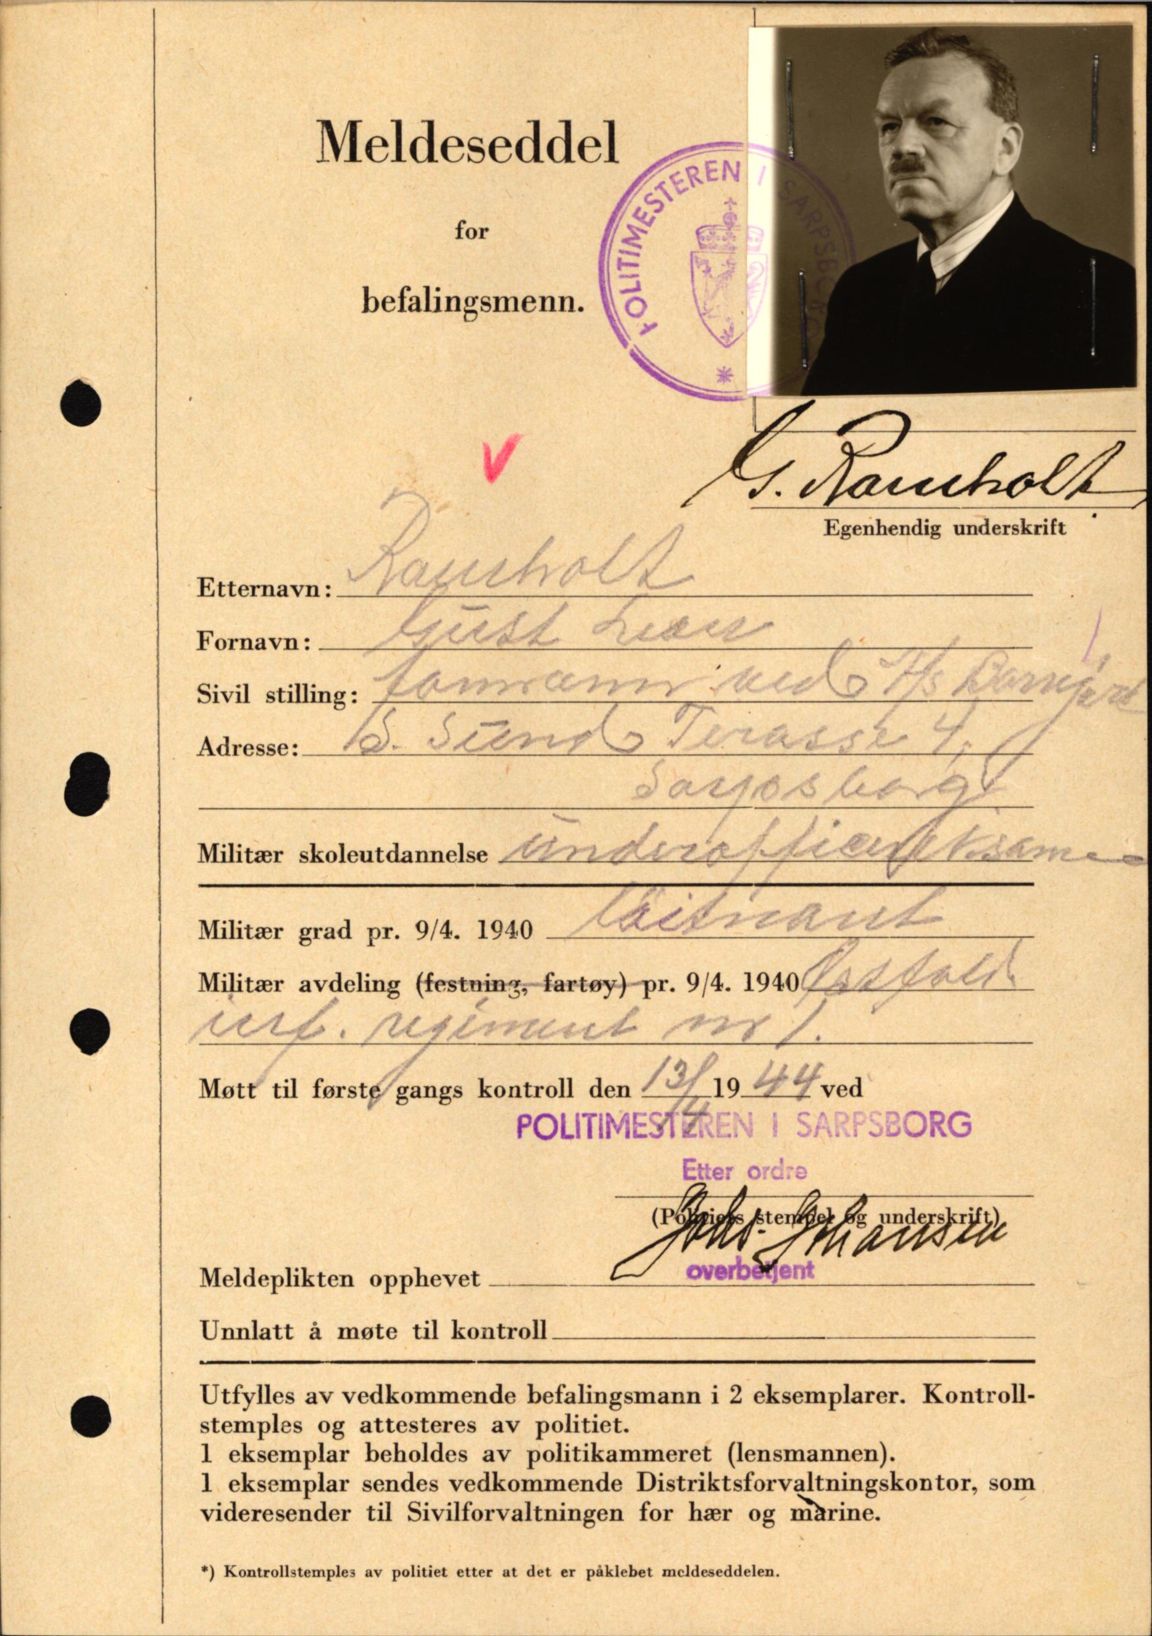 Meldeseddel
for
befalingsmenn.
POLITIMESTEREN I SARPSBORG
V
G. Ramholt
Egenhendig underskrift
Etternavn: Ramholt
Fornavn: Gust
Sivil stilling: formann ved A/s Borregård
Adresse: S. Sund Terasse 4,
Sarpsborg
Militær skoleutdannelse underofficerseksamen
Militær grad pr. 9/4. 1940 Løitnant
Militær avdeling (festning, fartøy) pr. 9/4. 1940 Østfold
inf. regiment nr 1.
Møtt til første gangs kontroll den 13/4 1944 ved
POLITIMESTEREN I SARPSBORG
Etter ordre
(Politiets stempel og underskrift)
Johs. Johansen
overbetjent
Meldeplikten opphevet
Unnlatt å møte til kontroll
Utfylles av vedkommende befalingsmann i 2 eksemplarer. Kontroll-
stemples og attesteres av politiet.
1 eksemplar beholdes av politikammeret (lensmannen).
1 eksemplar sendes vedkommende Distriktsforvaltningskontor, som
videresender til Sivilforvaltningen for hær og marine.
*) Kontrollstemples av politiet etter at det er påklebet meldeseddelen.